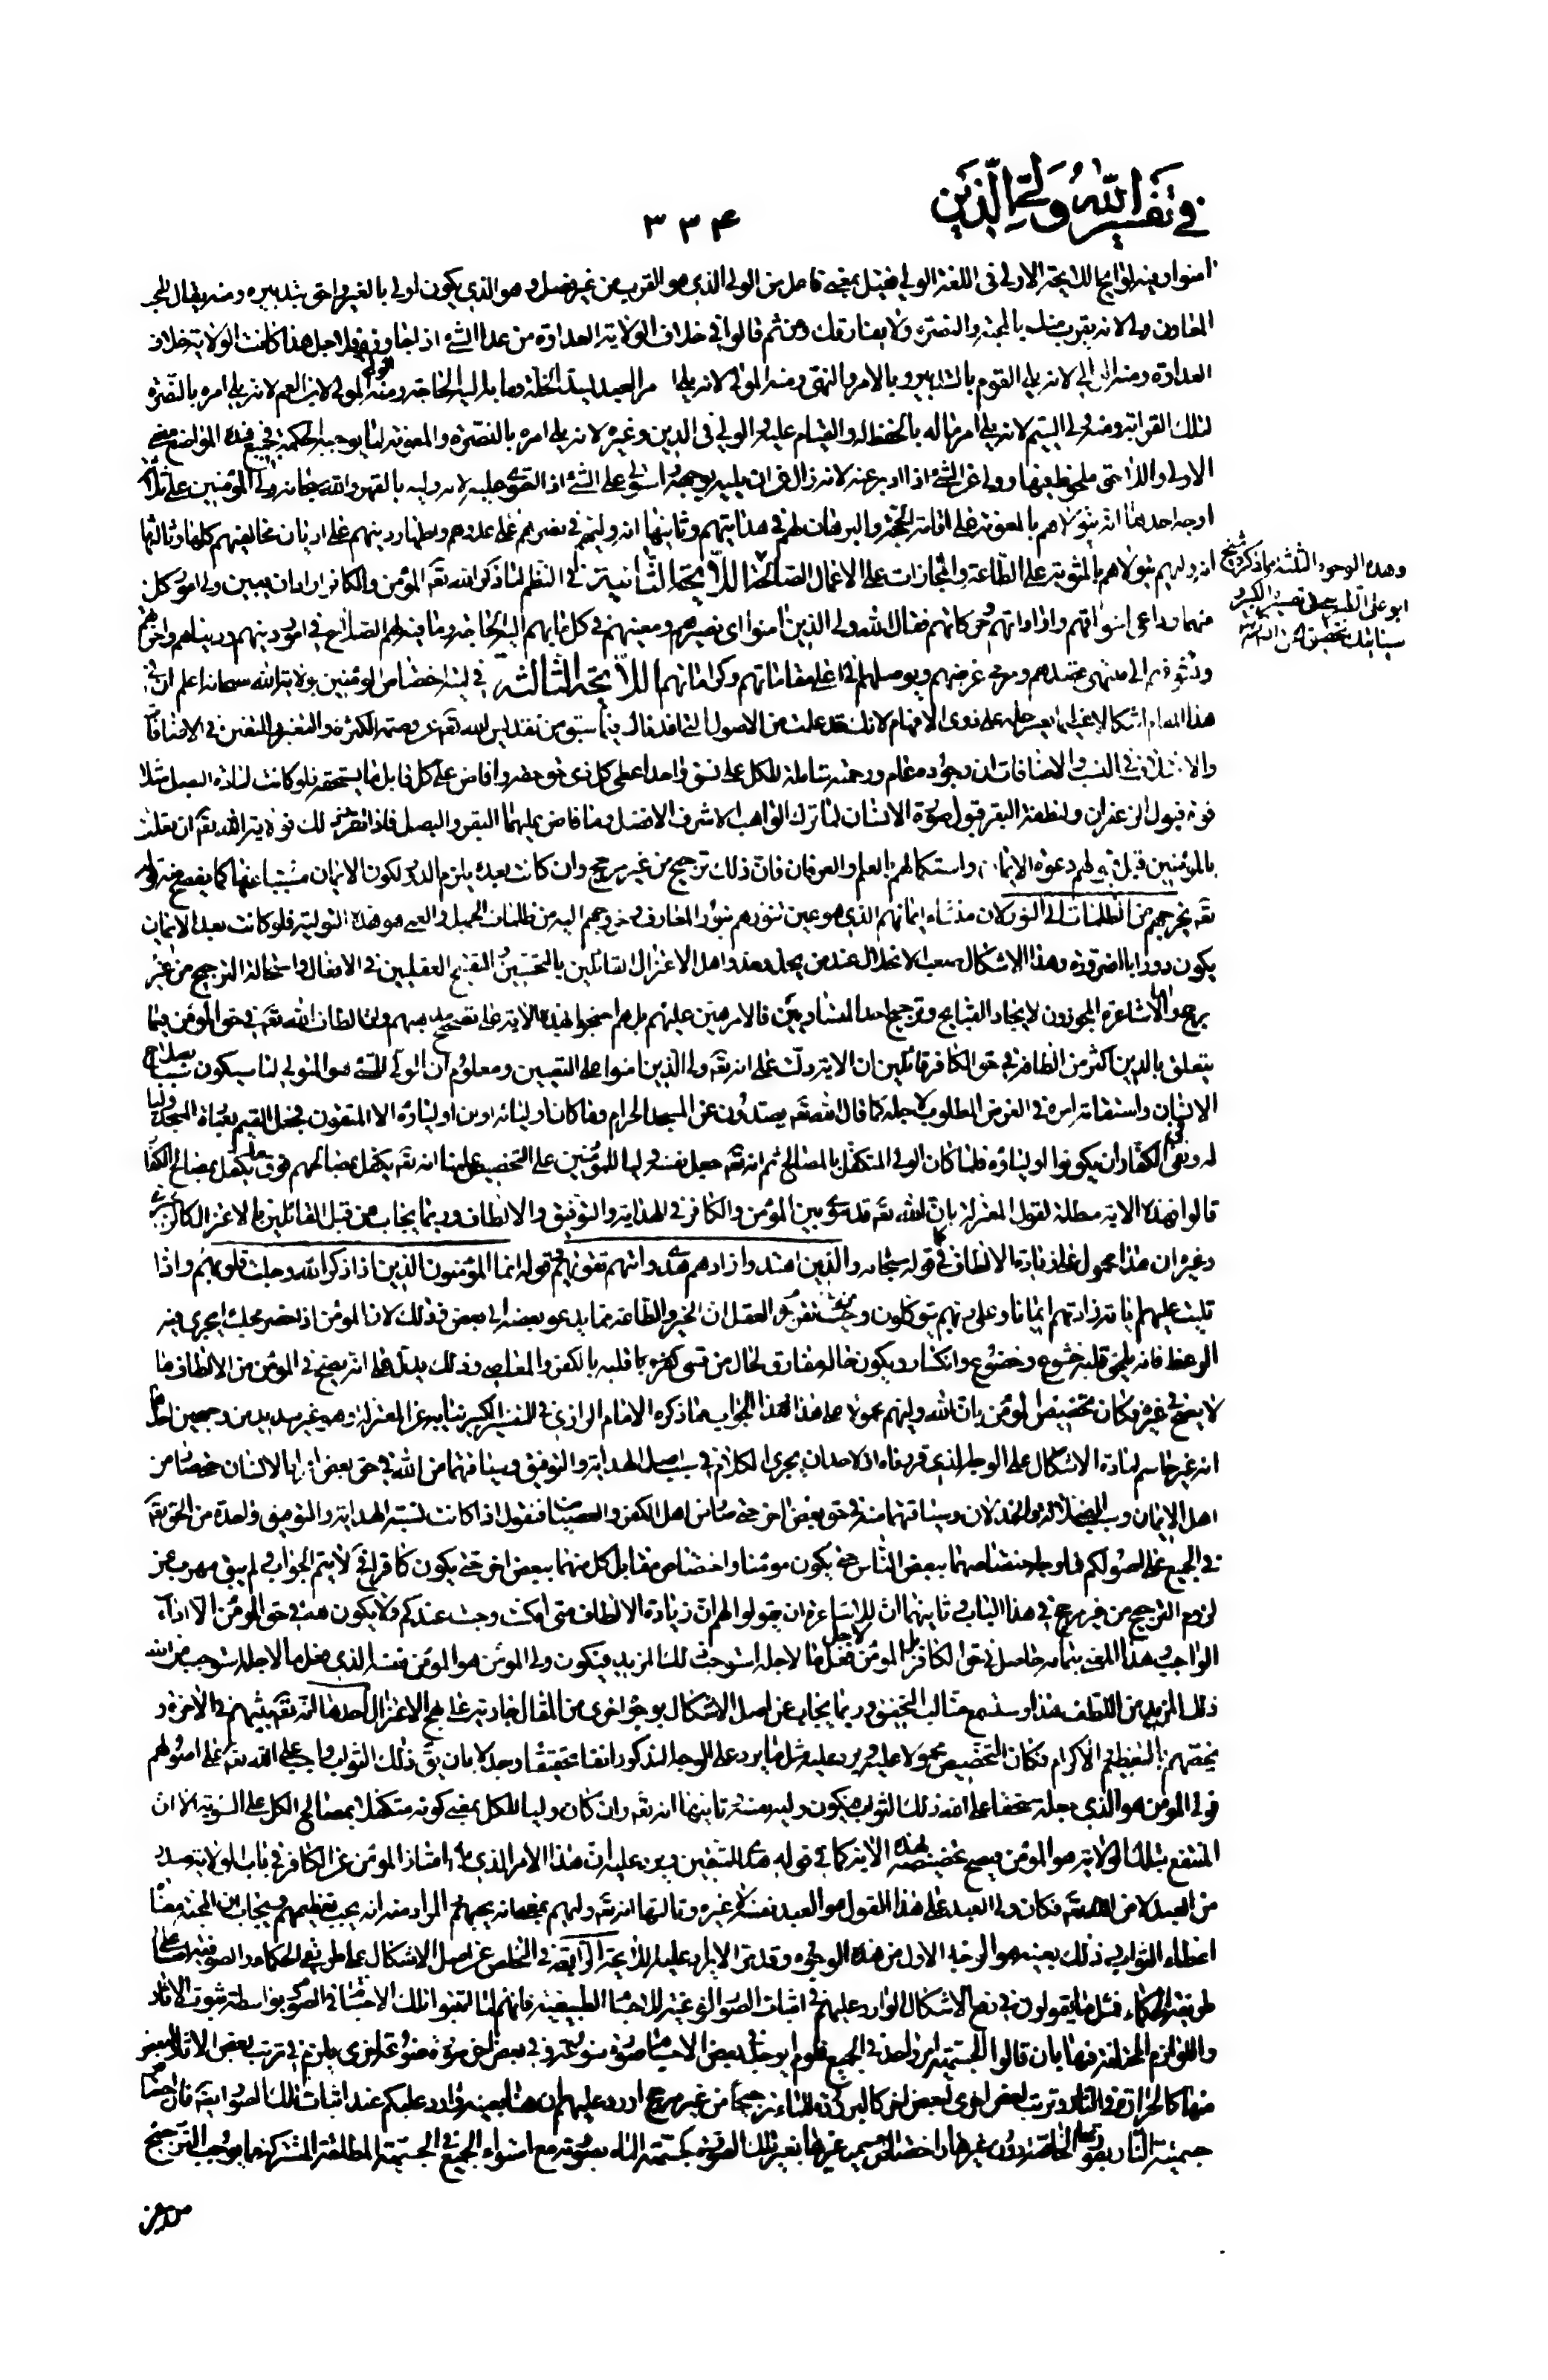 في تفسير الله ولي الذين
۳۳۴
امنوا وفيه لوايح اللايحة الاولى فى اللغة الولي فعيل بمعنى فاعل من الولي الذي هو القرب من غير فصل وهو الذي يكون اولى بالغير واحق بتدبيره ومنه يقال للمحب
المعاون ولي لانه يقرب منك بالمحبة والنصرة ولا يفارقك ومن ثم قالوا في خلاف الولاية العداوة من عدا الشئ اذا جاوزه فلاجل هذا كانت الولاية خلاف
العداوة ومنه الوالي لانه يلي القوم بالتدبير وبالامر والنهي ومنه المولى لانه يلي امر العبد بسد الخلة وما به اليه الحاجة ومنه المولى لابن العم لانه يلي امره بالنصرة
لتلك القرابة ومنه ولي اليتيم لانه يلي امر ماله بالحفظ له والقيام عليه والولي في الدين وغيره لانه يلي امره بالنصرة والمعونة لما يوجبه الحكمة فجميع هذه المواضع معنى
الاولى والاحق ملحوظ فيها وولى عن الشئ اذا ادبر عنه لانه زال عن ان يليه بوجهه واستولى على الشئ اذا احتوى عليه لانه وليه بالقهر والله سبحانه ولي المؤمنين على ثلثة
اوجه احدها انه يتولاهم بالمعونة على اقامة الحجة والبرهان لهم في هدايتهم وثانيها انه وليهم في نصرهم على عدوهم واظهار دينهم على اديان مخالفيهم كلها وثالثها
انه وليهم يتولاهم بالمثوبة على الطاعة والمجازات على الاعمال الصالحة اللايحة الثانية في النظم لما ذكر الله تعه المؤمن والكافر اراد ان يبين ولي امور كل
وهذه الوجوه الثلثة مما ذكره الشيخ
ابو على الطبرسي في تفسيره الكبير و
منهما وداعى اشواقهم واراداتهم وحركاتهم فقال الله ولي الذين امنوا اى نصيرهم ومعينهم في كل ما بهم اليه الحاجة وما فيه لهم الصلاح في امور دينهم ودنياهم واخرتهم
الى منتهى مقصدهم ومرمى غرضهم ويوصلهم الى اعلى مقاماتهم وكراماتهم اللايحة الثالثة في لمية اختصاص المؤمنين بولاية الله سبحانه اعلم ان في
هذا المقام اشكالا عظيما يعسر حله على ذوى الافهام لانك قد علمت من الاصول التي قد فات فيما سبق من تقديس الله تعه عن وصمة الكثرة والتغير والتفنن في الاضافات
والاختلاف في النسب والاضافات ان وجوده عام ورحمته شاملة للكل على نسق واحد اعطى كل ذى حق حقه وافاض على كل قابل ما يستحقه فلو كانت لمادة البصل مثلا
قوة قبول الزعفران ولنطفة البقر قبول صورة الانسان لما ترك الواهب الاشرف الافضل وما فاض عليهما البقر والبصل فاذا تقرر ذلك فولاية الله تعه ان تعلقت
بالمؤمنين قبل قبولهم دعوة الايمان واستكمالهم بالعلم والعرفان فان ذلك ترجيح من غير مرجح وان كانت بعده يلزم الدور لكون الايمان مسببا عنها كما يفصح عنه قوله
تعه يخرجهم من الظلمات الى النور لان منشاء ايمانهم الذي هو عين تنورهم بنور المعارف وخروجهم اليه من ظلمات الجهل والعمى هو هذه التولية فلو كانت بعد الايمان
يكون دورا بالضرورة وهذا الاشكال صعب الانحلال عند من يحذو حذو اهل الاعتزال القائلين بالتحسين والتقبيح العقليين في الافعال واستحالة الترجيح من غير
مرجح واما الاشاعرة المجوزون لايجاد القبايح وترجيح احد المتساويين فالامر هين عليهم بل هم احتجوا بهذه الاية على تصحيح مذهبهم وان الطاف الله تعه في حق المؤمن فيما
يتعلق بالدين اكثر من الطافه في حق الكافر قائلين ان الاية دلت على انه تعه ولي الذين امنوا على التعيين ومعلوم ان الولي للشئ هو المتولي لما سيكون سببا لصلاح
الانسان واستقامة امره في الغرض المطلوب لاجله كما قال الله تعه يصدون عن المسجد الحرام وما كانوا اولياءه ان اولياؤه الا المتقون فجعل القيم بعمارة المسجد وليا
له ونفى في الكفار ان يكونوا اولياؤه فلما كان الولي المتكفل بالمصالح ثم انه تعه جعل نفسه وليا للمؤمنين على التخصيص علمنا انه تعه يتكفل بمصالحهم فوق ما يتكفل بمصالح الكفار
قالوا فهذه الاية مبطلة لقول المعتزلة بان الله تعه قد سوى بين المؤمن والكافر في الهداية والتوفيق والالطاف وربما يجاب من قبل القائلين بالاعتزال كالزمخشري
وغيره ان هذا محمول على زيادة الالطاف كما في قوله سبحانه والذين اهتدوا زادهم هدى واتيهم تقويهم وقوله انما المؤمنون الذين اذا ذكر الله وجلت قلوبهم واذا
تليت عليهم اياته زادتهم ايمانا وعلى ربهم يتوكلون وحيث تقرر في العقل ان الخير والطاعة مما يدعو بعضه الى بعض فذلك لان المؤمن اذا حضر مجلسا يجرى فيه
الوعظ فانه يلحق قلبه خشوع وخضوع وانكسار ويكون حاله مفارق لحال من قسى قلبه بالكفر والمعاصي وذلك يدل على انه يصح في المؤمن من الالطاف ما
لا يصح في غيره فكان تخصيص المؤمن بان الله وليهم محمولا على هذا هذا الجواب مما ذكره الامام الرازي في التفسير الكبير نيابة عن المعتزلة وهو غير سديد من وجهين احدهما
انه غير حاسم لمادة الاشكال على الوجه الذي قررناه اذ لاحد ان يجرى الكلام في سبب اصل الهداية والتوفيق وسياقتهما من الله في حق بعض افراد الانسان خصوصا من
اهل الايمان وسبب الضلالة والخذلان وسياقتهما منه في حق بعض اخر خصوصا من اهل الكفر والعصيان فنقول اذا كانت نسبة الهداية والتوفيق واحدة من الحق تعه
في الجميع على اصولكم فما وجه اختصاصهما ببعض الناس حتى يكون مومنا واختصاص مقابل كل منهما ببعض اخر حتى يكون كافرا فح لا يتم الجواب ولم يبق مهرب عن
لزوم الترجيح من غير مرجح في هذا الباب وثانيهما ان للاشاعرة ان يقولوا لهم ان زيادة الالطاف متى امكنت وجبت عندكم ولا يكون هيهنا في حق المؤمن الا اداء
الواجب وهذا المعنى بتمامه حاصل في حق الكافر بل المؤمن فعل ما لاجله استوجب ذلك المزيد فيكون ولي المؤمن هو المؤمن نفسه الذي فعل ما لاجله استوجب من الله
ذلك المزيد من اللطف هذا وستسمع منا لب التحقيق وربما يجاب عن اصل الاشكال بوجوه اخرى من المقال جارية على نهج الاعتزال احدها انه تعه يثيبهم في الاخرة و
يخصهم بالتعظيم والاكرام فكان التخصيص محمولا عليه ويرد عليه مثل ما يرد على الوجه المذكور انفا تحقيقا وجدلا بان يق ذلك الثواب واجب على الله تعه على اصولهم
فولي المؤمن هو الذي جعله مستحقا على الله ذلك الثواب فيكون وليه نفسه ثانيها انه تعه وان كان وليا للكل بمعنى كونه متكفلا بمصالح الكل على السوية الا ان
المنتفع بتلك الولاية هو المؤمن فيصح تخصيصه بهذه الاية كما في قوله هدى للمتقين ويرد عليه ان هذا الامر الذي به امتاز المؤمن عن الكافر في باب الولاية صدر
من العبد لا من الله تعه فكان ولي العبد على هذا القول هو العبد نفسه لا غيره وثالثها انه تعه وليهم بمعنى انه يحبهم والمراد منه انه يحب تعظيمهم ويجاب بان المحبة معناها
اعطاء الثواب وذلك بعينه هو الوجه الاول من هذه الوجوه وقد مر الايراد عليه اللايحة الرابعة في التخلص عن اصل الاشكال على طريقي الحكماء والصوفية اما على
طريقة الحكماء فمثل ما يقولون في دفع الاشكال الوارد عليهم في اثبات الصور النوعية للاجسام الطبيعية فانهم لما اثبتوا تلك الاجسام الصور بواسطة ثبوت الاثار
واللوازم المختلفة فيها بان قالوا الجسمية امر واحد في الجميع فلو لم يوجد في بعض الاجسام صورة منوعة وفي بعض اخر صورة منوعة اخرى يلزم في ترتب بعض الاثار لبعض
منها كالحرارة في النار وترتب بعض اخرى لبعض اخر كالبرودة للماء ترجيحا من غير مرجح اورد عليهم ان هذا بعينه وارد عليكم عند اثبات تلك الصور ايضا فان اختصاص
جسمية النار بصورتها الخاصة دون غيرها واختصاص جسم غيرها بغير تلك الصورة كجسمية الماء بصورته مع استواء الجميع في الجسمية المطلقة المشتركة مما يوجب الترجيح
من غير